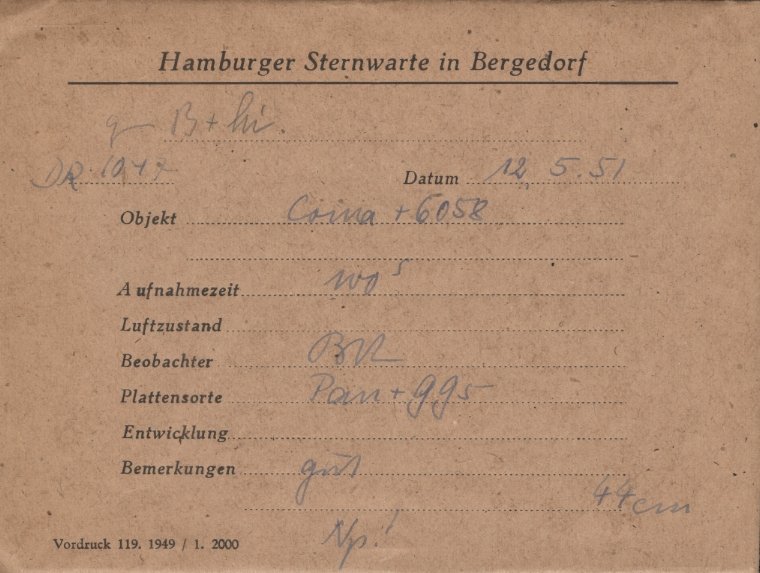 Hamburger Sternwarte in Bergedorf
B + hi.
DR 1047
Datum 12. 5. 51
Objekt Coma + 6058
Aufnahmezeit 100 s
Luftzustand
Beobachter
Plattensorte Pan + 995
Entwicklung
Bemerkungen gut
44 cm
Np.!
Vordruck 119. 1949 / 1. 2000